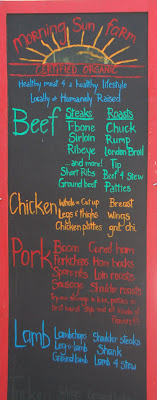 Morning Sun Farm
CERTIFIED ORGANIC
Healthy meat 4 a healthy lifestyle
Locally & Humanely Raised
Beef
Steaks
T-bone
Sirloin
Ribeye
...and more!
Short Ribs
Ground beef
Roasts
Chuck
Rump
London Broil
Tip
Beef 4 Stew
Patties
Chicken
Whole or Cut up
Legs & thighs
Chicken patties
Breast
Wings
Pork
Bacon
Porkchops
Spare ribs
Sausage
Cured ham
Ham hocks
Loin roasts
Shoulder roasts
Lamb
Lambchops
Leg-o-lamb
Ground lamb
Shoulder steaks
Shank
Lamb 4 stew